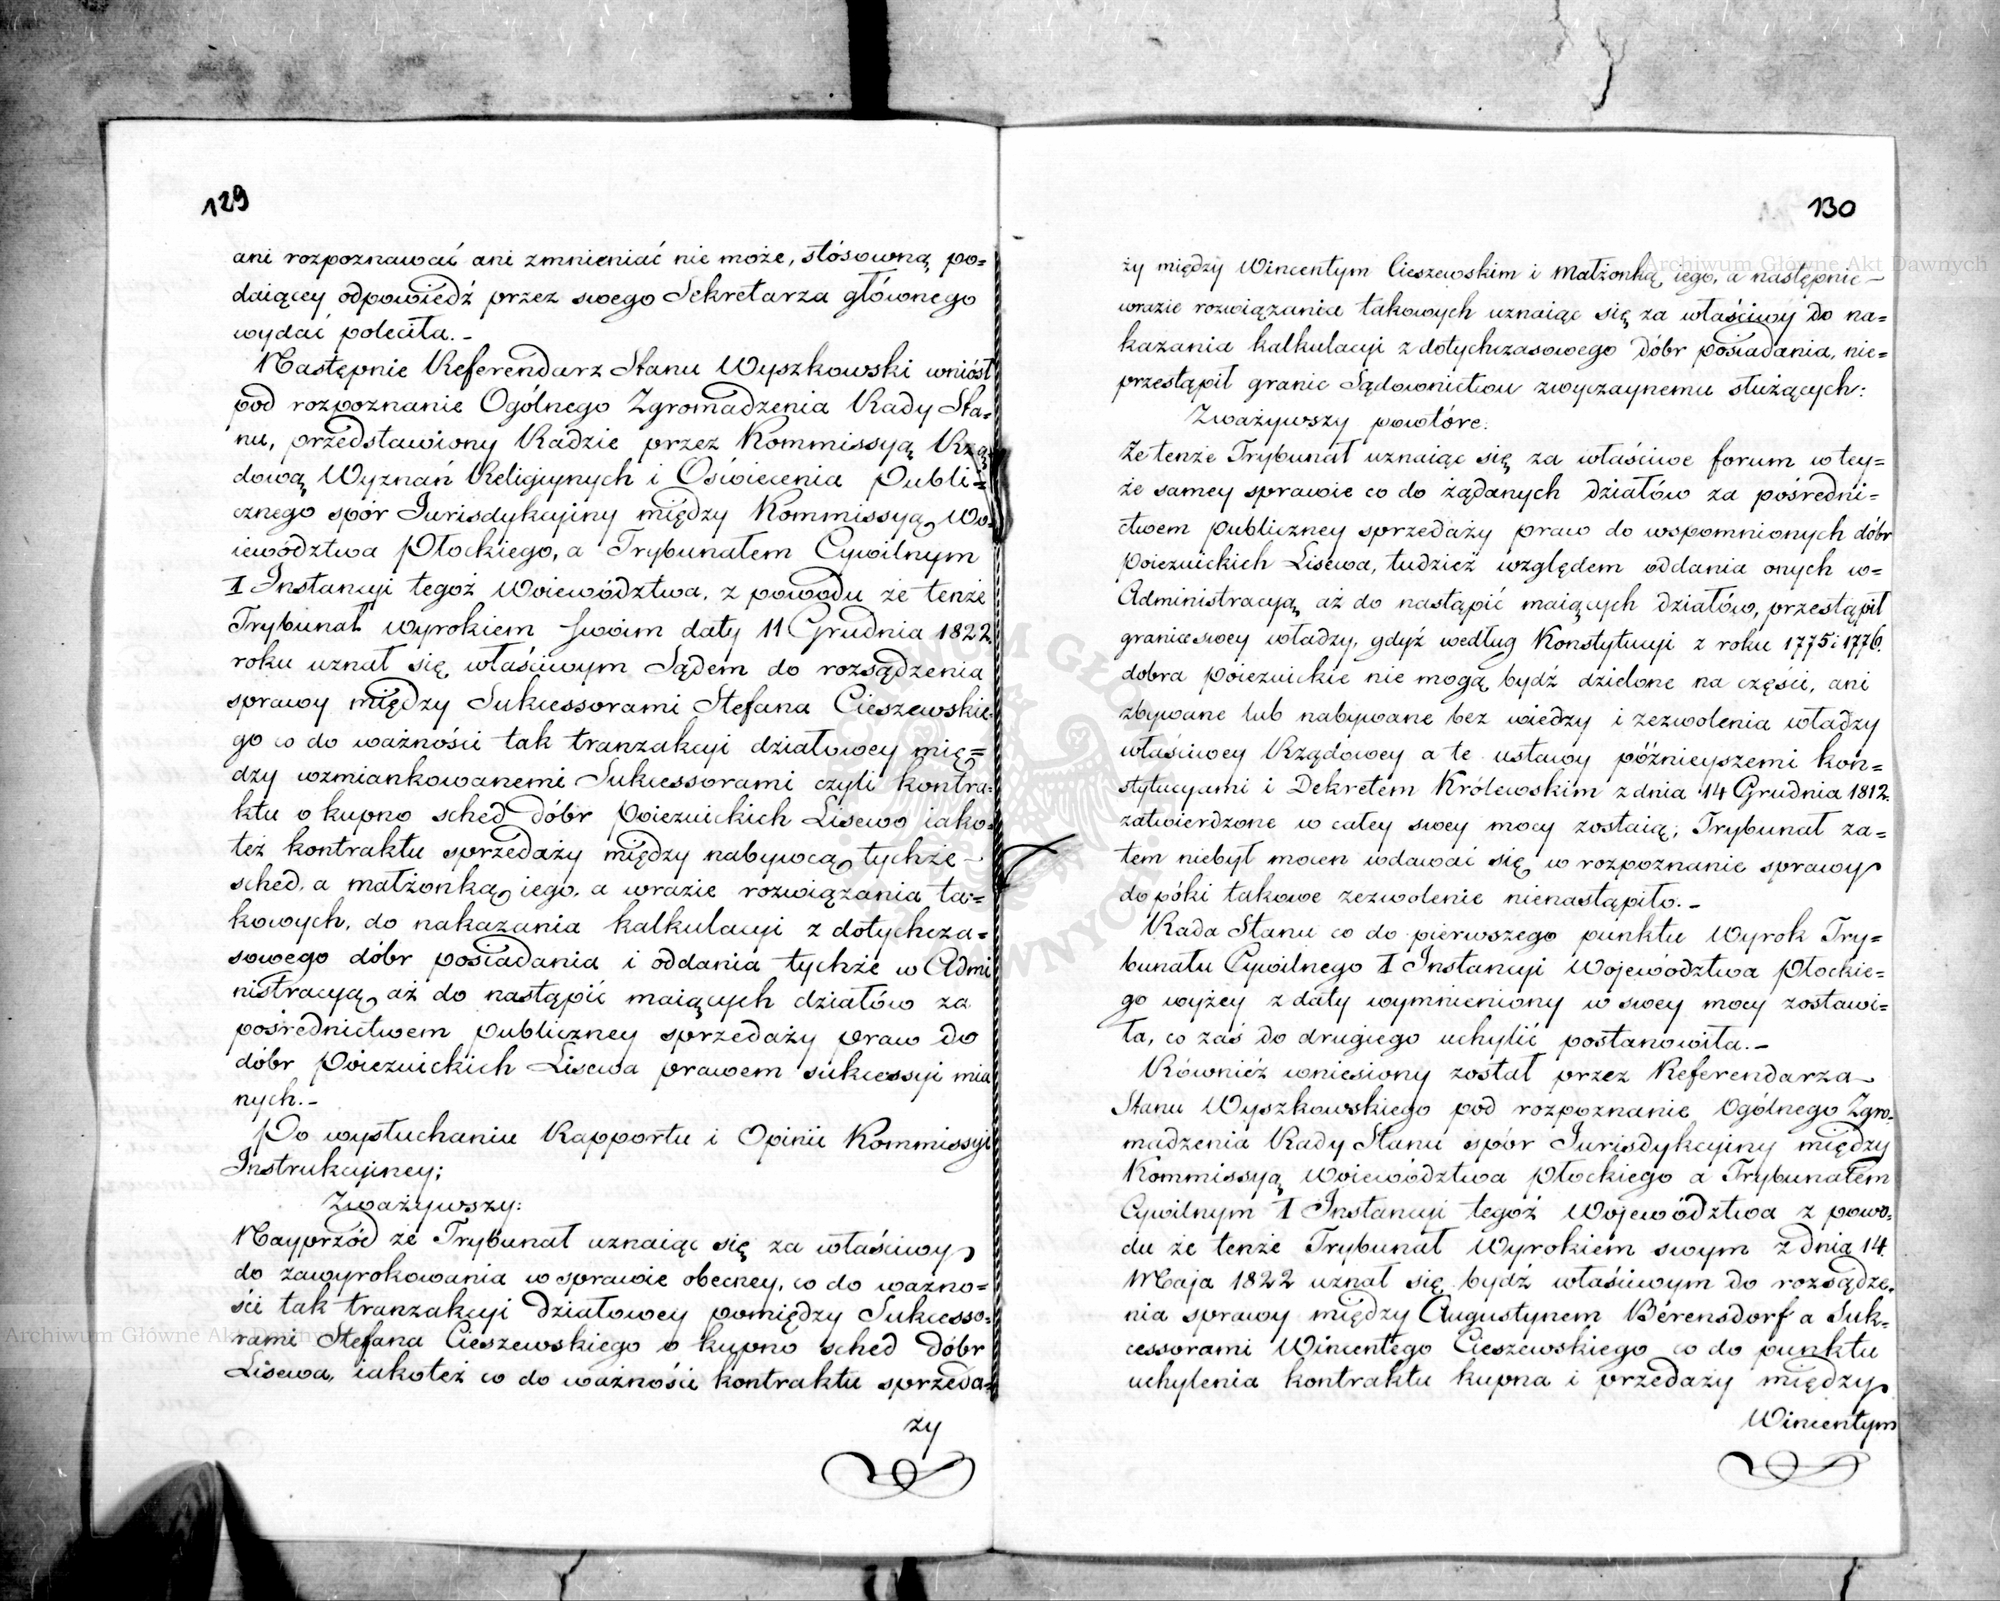 129
ani rozpoznawać ani zmnieniać nie może, stósowną po=
daiącey odpowiedź przez swego Sekretarza głównego
wydać poleciła.-
Następnie Referendarz Stanu Wyszkowski wniósł
pod rozpoznanie Ogólnego Zgromadzenia Rady Sta=
nu, przedstawiony Radzie przez Kommissyą Rzą=
dową Wyznań Religiynych i Oświecenia Publi=
cznego spór Jurisdykcyiny między Kommissyą Wo=
iewództwa Płockiego, a Trybunałem Cywilnym
I Instancyi tegoż Woiewództwa, z powodu że tenże
Trybunał wyrokiem swoim daty 11 Grudnia 1822
roku uznał się właściwym Sądem do rozsądzenia
sprawy między Sukcessorami Stefana Cieszewskie=
go co do ważności tak tranzakcyi działowey mię=
dzy wzmiankowanemi Sukcessorami czyli kontra=
ktu o kupno sched dóbr Poiezuickich Lisewo iako=
też kontraktu sprzedaży między nabywcą tychże -
sched, a małżonką iego, a wrazie rozwiązania ta=
kowych, do nakazania kalkulacyi z dotychcza=
sowego dóbr posiadania i oddania tychże w Admi
nistracyą aż do nastąpić maiących działów za
pośrednictwem publiczney sprzedaży praw do
dóbr Poiezuickich Lisewa prawem sukcessyi mia
nych.-
Po wysłuchaniu Rapportu i Opinii Kommissyi
Instrukcyiney;
Zważywszy:
Nayprzód że Trybunał uznaiąc się za właściwy
do zawyrokowania w sprawie obecney, co do ważno=
ści tak tranzakcyi działowey pomiędzy Sukcesso=
rami Stefana Cieszewskiego o kupno sched dóbr
Lisewa, iakoteż co do ważności kontraktu sprzeda=
ży
130
ży między Wincentym Cieszewskim i Małżonką iego, a następnie -
wrazie rozwiązania takowych uznaiąc się za właściwy do na=
kazania kalkulacyi z dotychczasowego dóbr posiadania, nie=
przestąpił granic Sądownictwu zwyczaynemu służących:
Zważywszy powtóre:
Że tenże Trybunał uznaiąc się za właściwe forum w tey=
że samey sprawie co do żądanych działów za pośredni=
ctwem publiczney sprzedaży praw do wspomnionych dóbr
Poiezuickich Lisewa, tudzież względem oddania onych w=
Administracyą aż do nastąpić maiących działów, przestąpił
granice swey władzy, gdyż według Konstytucyi z roku 1775 i 1776.
dobra Poiezuickie nie mogą bydź dzielone na części, ani
zbywane lub nabywane bez wiedzy i zezwolenia władzy
właściwey Rządowey a te ustawy późnieyszemi kon=
stytucyami i Dekretem Królewskim z dnia 14 Grudnia 1812.
zatwierdzone w całey swey mocy zostaią; Trybunał za=
tem niebył mocen wdawać się w rozpoznanie sprawy
dopóki takowe zezwolenie nienastąpiło.-
Rada Stanu co do pierwszego punktu Wyrok Try=
bunału Cywilnego I Instancyi Województwa Płockie=
go wyżey z daty wymnieniony w swey mocy zostawi=
ła, co zaś do drugiego uchylić postanowiła.-
Również wniesiony został przez Referendarza
Stanu Wyszkowskiego pod rozpoznanie Ogólnego Zgro=
madzenia Rady Stanu spór Jurisdykcyiny między
Kommissyą Woiewództwa Płockiego a Trybunałem
Cywilnym I Instancyi tegoż Województwa z powo=
du że tenże Trybunał Wyrokiem swym z dnia 14.
Maja 1822 uznał się bydź właściwym do rozsądze=
nia sprawy między Augustynem Bérensdorf a Suk=
cessorami Wincentego Cieszewskiego co do punktu
uchylenia kontraktu kupna i przedaży między
Wincentym
Archiwum Główne Akt Dawnych
Archiwum Główne Akt Dawnych